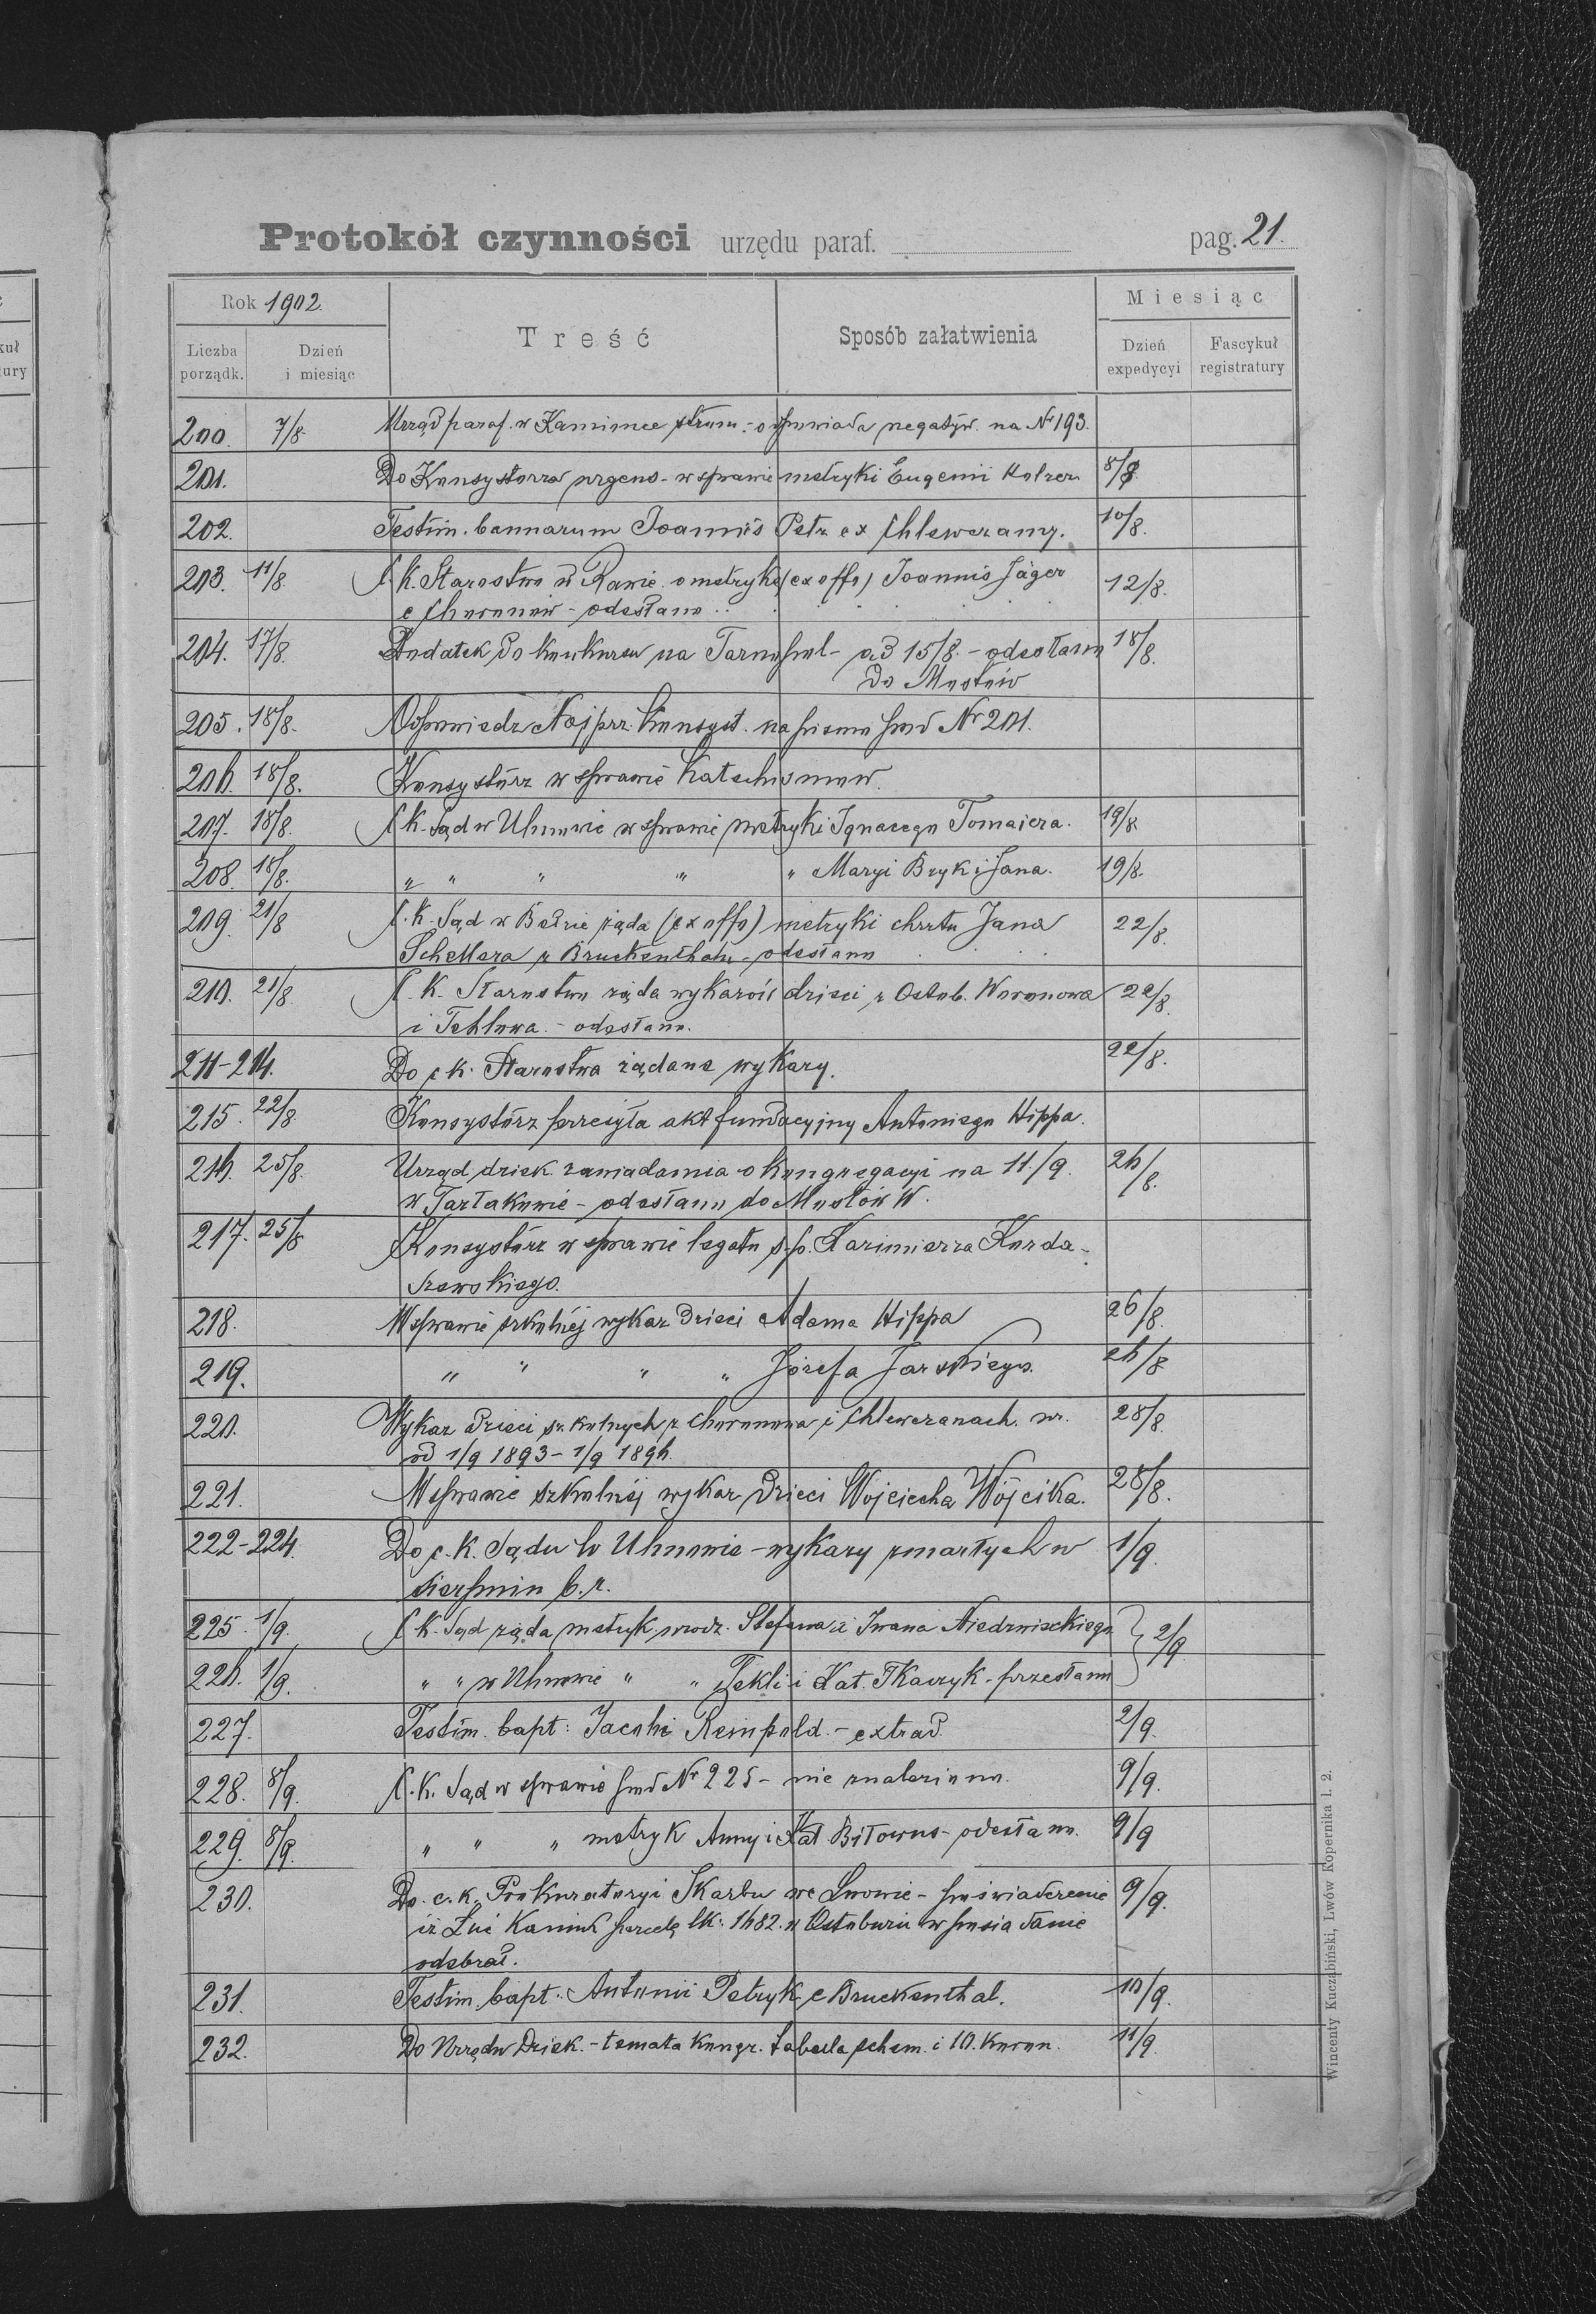 Protokół czynności urzędu paraf. pag. 21.
Rok 1902.
Treść
Sposób załatwienia
Miesiąc
Liczba porządk.
Dzień i miesiąc
Dzień expedycyi
Fascykuł registratury
200. 7/8. Urząd paraf. w Kamionce strum. - odpowiada negatyw. na Nr 193.
201. Do Konsystorza urgens - w sprawie metryki Eugenii Holzer 8/8.
202. Testim. bannarum Joannis Petz ex Chlewczany. 10/8.
203. 11/8 C. k. Starostwo w Rawie o metrykę (ex offo) Joannis Jäger 12/8.
e Choronów - odesłano
204. 17/8. Dodatek do konkursu na Tarnopol - ad 15/8. - odesłano 18/8.
do Mostów
205. 18/8. Odpowiedz Najprz. Konsyst. na pismo pod Nr 201.
206. 18/8. Konsystórz w sprawie Katechizmów.
207. 18/8. C k. Sąd w Uhnowie w sprawie metryki Ignacego Tomaiera. 19/8.
208. 18/8. " " " " " Maryi Bryk i Jana. 19/8.
209. 21/8 C. k. Sąd w Bełzie żąda (ex offo) metryki chrztu Jana 22/8.
Schellera z Bruckenthalu - odesłano
210. 21/8. C. K. Starostwo żąda wykazów dzieci z Ostob. Woronowa 22/8.
i Tehlowa. - odesłano.
211-214. Do c k. Starostwa żądane wykazy. 22/8.
215. 22/8. Konsystórz przesyła akt fundacyjny Antoniego Hippa.
216. 25/8. Urząd dziek. zawiadamia o kongregacyi na 11./9. 26/8.
w Tartakowie - odesłano do Mostów W.
217. 25/8 Konsystórz w sprawie legatu ś. p. Kazimierza Korda-
szewskiego.
218. W sprawie szkolnéj wykaz dzieci Adama Hippa 26/8.
219. " " " " Józefa Jarskiego. 26/8
220. Wykaz dzieci szkolnych z Choronowa i Chlewczanach ur. 28/8.
od 1/9 1893 - 1/9 1896.
221. W sprawie szkolnéj wykaz dzieci Wojciecha Wójcika. 28/8.
222-224. Do c. K. Sądu w Uhnowie - wykazy zmarłych w 1/9.
sierpniu b. r.
225. 1/9. C k. Sąd żąda metryk. urodz. Stefana i Iwana Niedzwieckiego } 2/9.
226. 1/9. " " w Uhnowie " " Tekli i Kat. Tkaczyk - przesłano
227. Testim. bapt: Jacobi Reinpold. - extrad. 2/9.
228. 8/9. C. K. Sąd w sprawie pod Nr 225 - nie znaleziono. 9/9.
229. 8/9. " " " metryk Anny i Kat. Biłowus - odesłano. 9/9
230. Do c. k. Prokuratoryi Skarbu we Lwowie - poświadczenie 9/9.
iż Luć Kaniuk parcelę lk: 1682. w Ostoburzu w posiadanie
odebrał.
231. Testim. bapt: Antonii Petryk e Bruckenthal. 10/9.
232. Do Urzędu Dziek. - temata kongr. tabella schem. i 10. koron. 11/9.
Wincenty Kuczabiński, Lwów Kopernika l. 2.